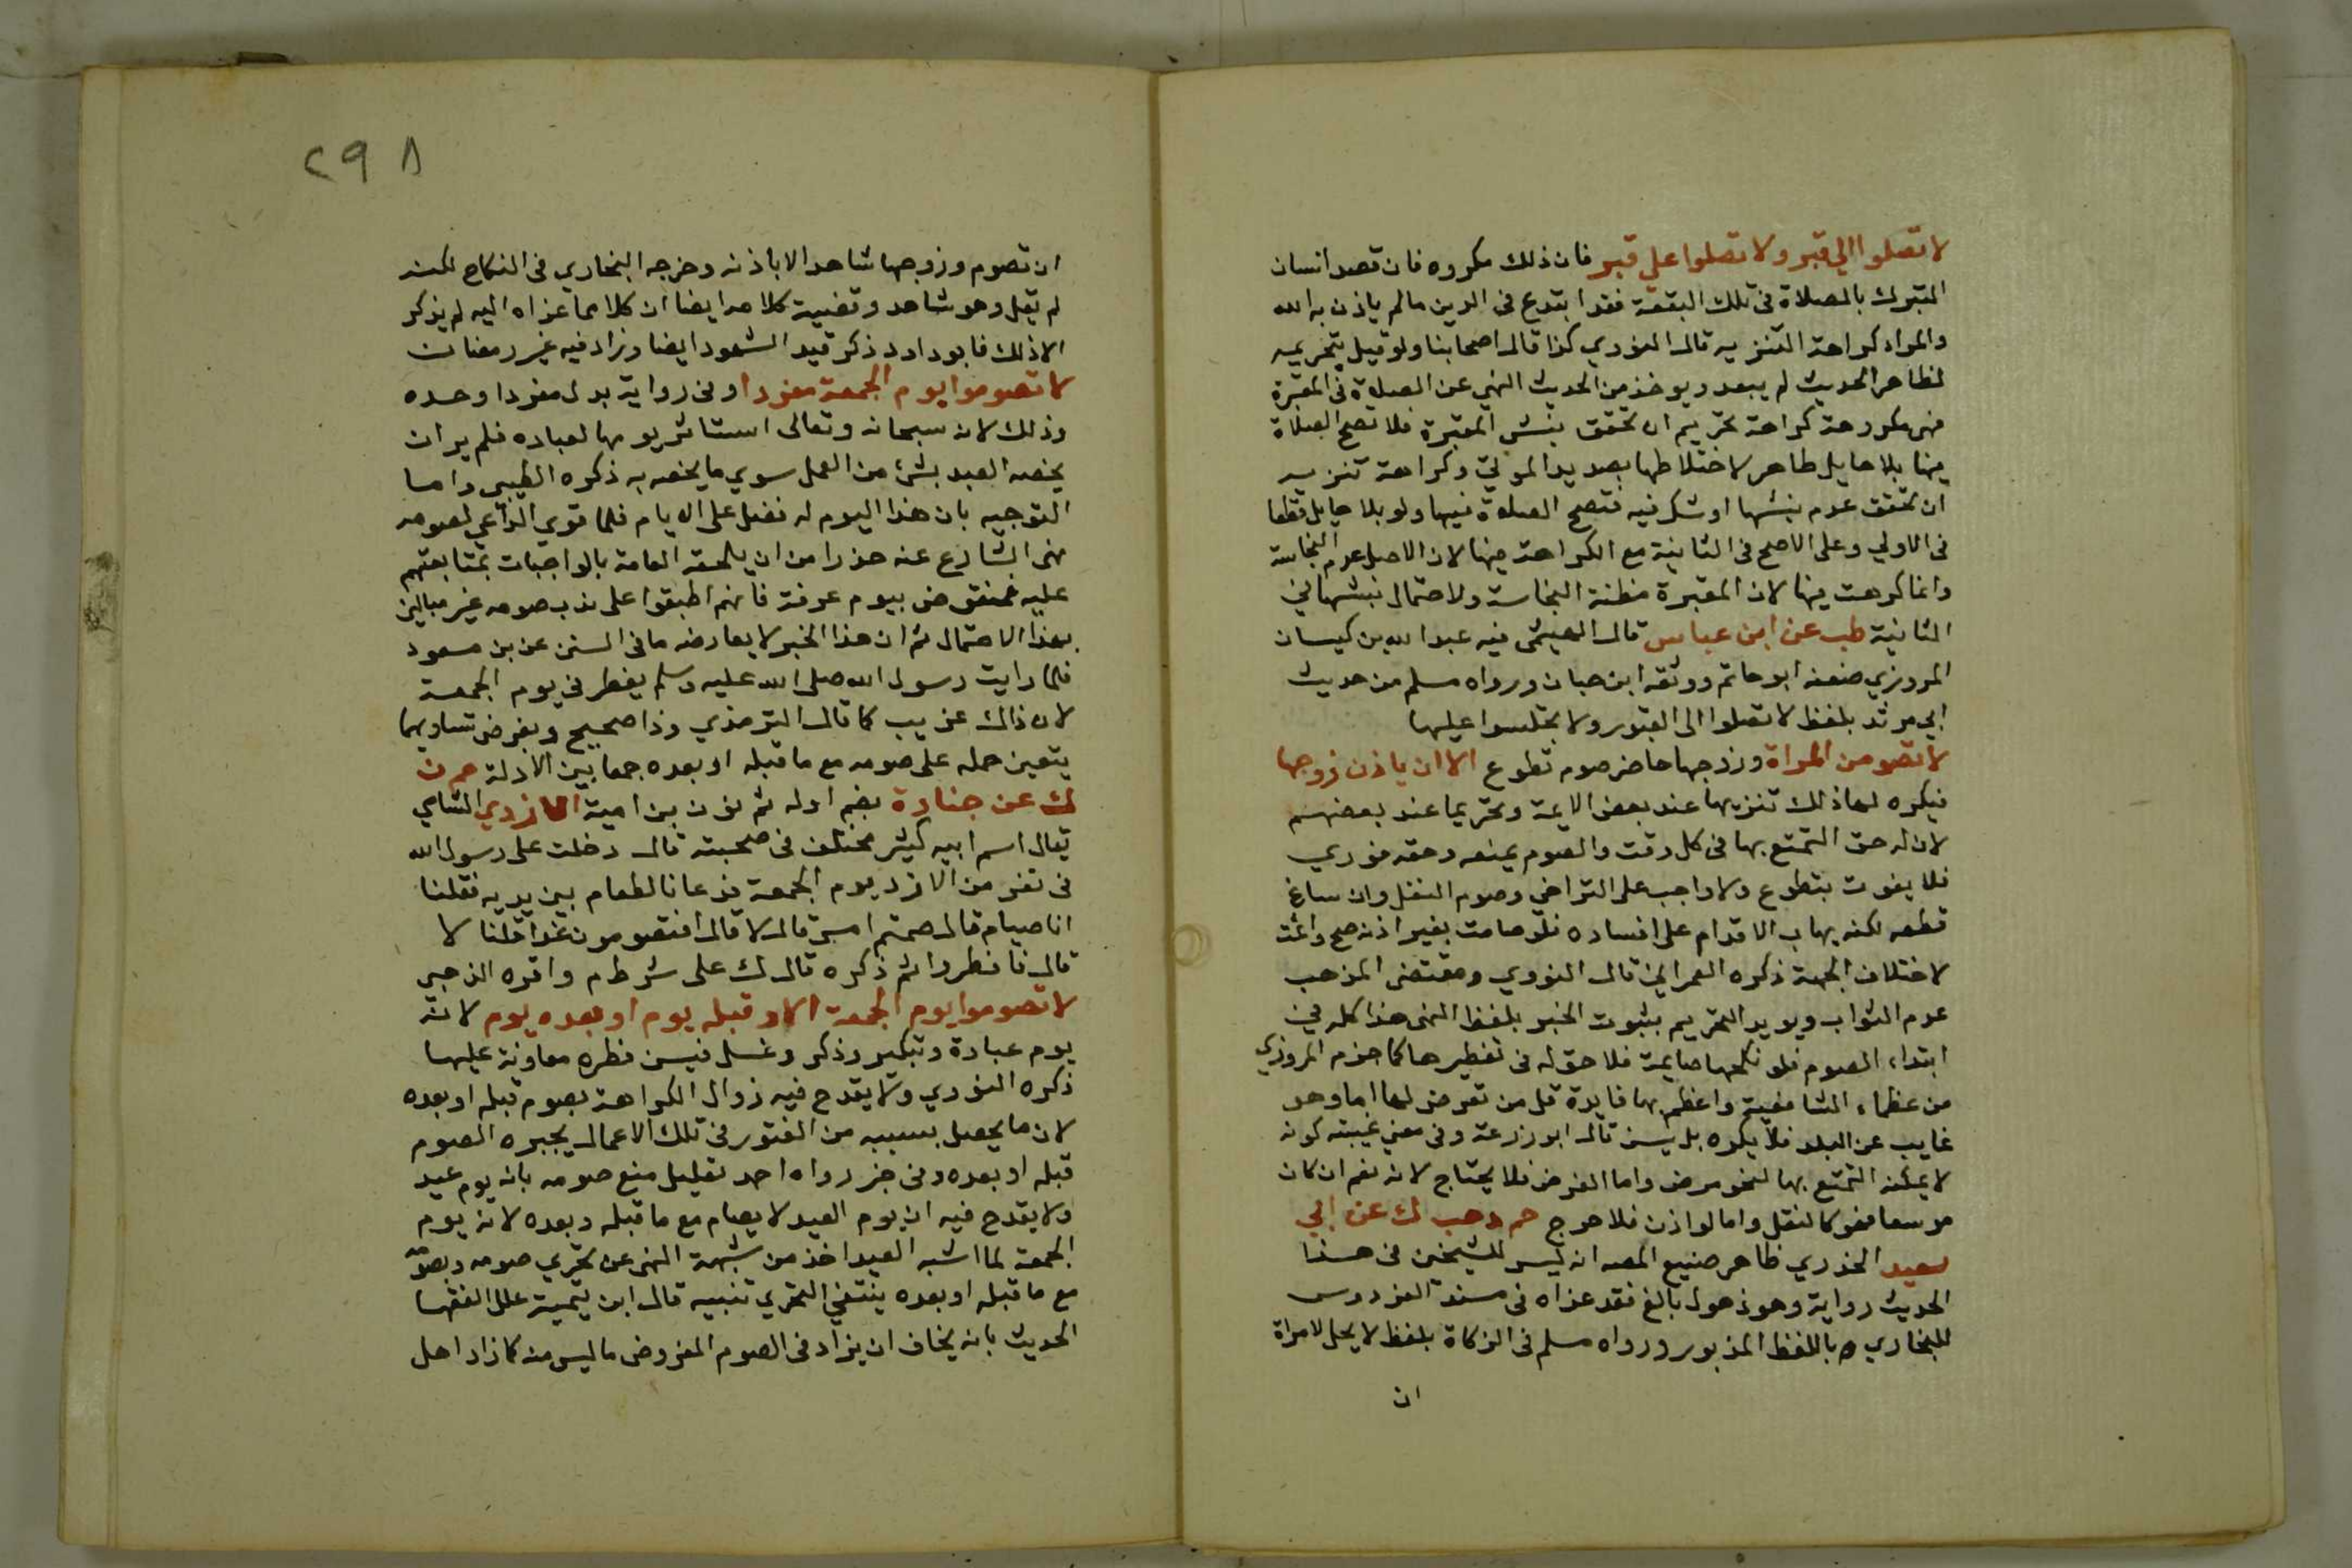 لا تصلوا الي قبر ولا تصلوا علي قبر فان ذلك مكروه فان قصد انسان
التبرك بالصلاة فى تلك البقعة فقد ابتدع فى الدين ما لم ياذن به الله
والمراد كراهة التنزيه قال النووي كذا قال اصحابنا ولو قيل بتحريمه
لظاهر الحديث لم يبعد ويوخذ من الحديث النهي عن الصلاة فى المقبرة
فهى مكروهة كراهة تحريم ان تحقق بنش المقبرة فلا تصح الصلاة
فيها بلا حايل طاهر لاختلاطها بصديد الموتي وكراهة تنزيه
ان تحقق عدم نبشها او شك فيه فتصح الصلاة فيها ولو بلا حايل قطعا
فى الاولي وعلى الاصح فى الثانية مع الكراهة فيها لان الاصل عدم النجاسة
وانما كرهت فيها لان المقبرة مظنة النجاسة ولاحتمال نبشها في
الثانية طب عن ابن عباس قال الهيثمى فيه عبد الله بن كيسان
المروزي ضعفه ابو حاتم ووثقه ابن حبان ورواه مسلم من حديث
ابي مرثد بلفظ لا تصلوا الى القبور ولا تجلسوا عليها
لا تصومن المراة وزوجها حاضر صوم تطوع الا ان ياذن زوجها
فيكره لها ذلك تنزيها عند بعض الايمة وتحريما عند بعضهم
لان له حق التمتع بها فى كل وقت والصوم يمنعه وحقه فوري
فلا يفوت بتطوع ولا واجب على التراخي وصوم النفل وان ساغ
قطعه لكنه يهاب الاقدام على افساده فلو صامت بغير اذنه صح واثمت
لاختلاف الجهة ذكره العمراني قال النووي ومقتضى المذهب
عدم الثواب ويويد التحريم بثبوت الخبر بلفظ النهى هذا كله في
ابتداء الصوم فلو نكحها صايمة فلا حق له فى تفطيرها كما جزم المروزي
من عظماء الشافعية واعظم بها فايدة قل من تعرض لها اما وهو
غايب عن البلد فلا يكره بل يسن قال ابو زرعة وفى معني غيبته كونه
لا يمكنه التمتع بها لنحو مرض واما الفرض فلا يحتاج لاذنه نعم ان كان
موسعا فهو كالنفل واما لو اذن فلا حرج حم د حب ك عن ابي
سعيد الخدري ظاهر صنيع المصه انه ليس للشيخين فى هذا
الحديث رواية وهو ذهول بالغ فقد عزاه فى مسند الفردوس
للبخاري ه باللفظ المذبور ورواه مسلم فى الزكاة بلفظ لا يحل لامراة
ان
٢٩٨
ان تصوم وزوجها شاهد الا باذنه وخرجه البخاري فى النكاح لكنه
لم يقل وهو شاهد وقضية كلامه ايضا ان كلا مما عزاه اليه لم يذكر
الا ذلك فابو داود ذكر قيد الشهود ايضا وزاد فيه غير رمضان
لا تصوموا يوم الجمعة مفردا وفى رواية بدل مفردا وحده
وذلك لانه سبحانه وتعالى استاثر يومها لعباده فلم ير ان
يخصه العبد بشئ من العمل سوي ما يخصه به ذكره الطيبى واما
التوجيه بان هذا اليوم له فضل على الايام فلما قوي الداعي لصومه
نهى الشارع عنه حذرا من ان يلحقه العامة بالواجبات بمتابعتهم
عليه فمنقوض بيوم عرفة فانهم اطبقوا على ندب صومه غير مبالين
بهذا الاحتمال ثم ان هذا الخبر لا يعارضه ما فى السنن عن بن مسعود
قلما رايت رسول الله صلى الله عليه وسلم يفطر فى يوم الجمعة
لان ذاك غريب كما قال الترمذي وذا صحيح وبفرض تساويهما
يتعين حمله على صومه مع ما قبله او بعده جمعا بين الادلة حم ن
ك عن جنادة بضم اوله ثم نون بن امية الازدي الشامي
يقال اسم ابيه كثير مختلف فى صحبته قال دخلت على رسول الله
فى نفر من الازد يوم الجمعة فدعانا لطعام بين يديه فقلنا
انا صيام قال صمتم امس قال لا قال افتصومون غدا قلنا لا
قال فافطروا ثم ذكره قال ك على شرط م واقره الذهبى
لا تصوموا يوم الجمعة الا وقبله يوم او بعده يوم لانه
يوم عبادة وتبكير وذكر وغسل فيسن فطره معاونة عليها
ذكره النووي ولا يقدح فيه زوال الكراهة بصوم قبله او بعده
لان ما يحصل بسببه من الفتور فى تلك الاعمال يجبره الصوم
قبله او بعده وفى خبر رواه احمد تعليل منع صومه بانه يوم عيد
ولا يقدح فيه ان يوم العيد لا يصام مع ما قبله وبعده لانه يوم
الجمعة لما اشبه العيد اخذ من شبهه النهى عن تحري صومه وبصومه
مع ما قبله او بعده ينتفي التحري تنبيه قال ابن تيمية علل الفقها
الحديث بانه يخاف ان يزاد فى الصوم المفروض ما ليس منه كما زاد اهل